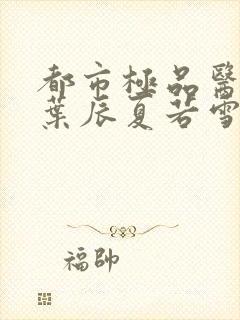 都市極品醫
葉辰夏若雪
福帥